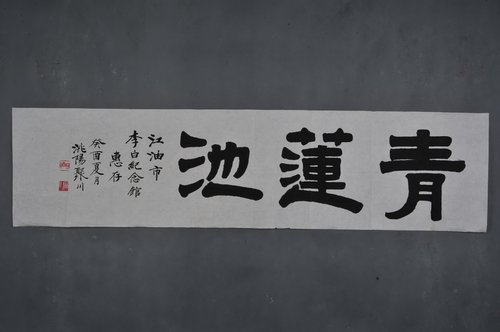 青蓮池
江油市
李白紀念館
惠存
癸酉夏月
洮陽張川